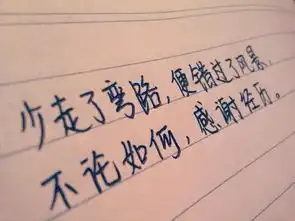 少走了弯路，便错过了风景，
不论如何，感谢经历。